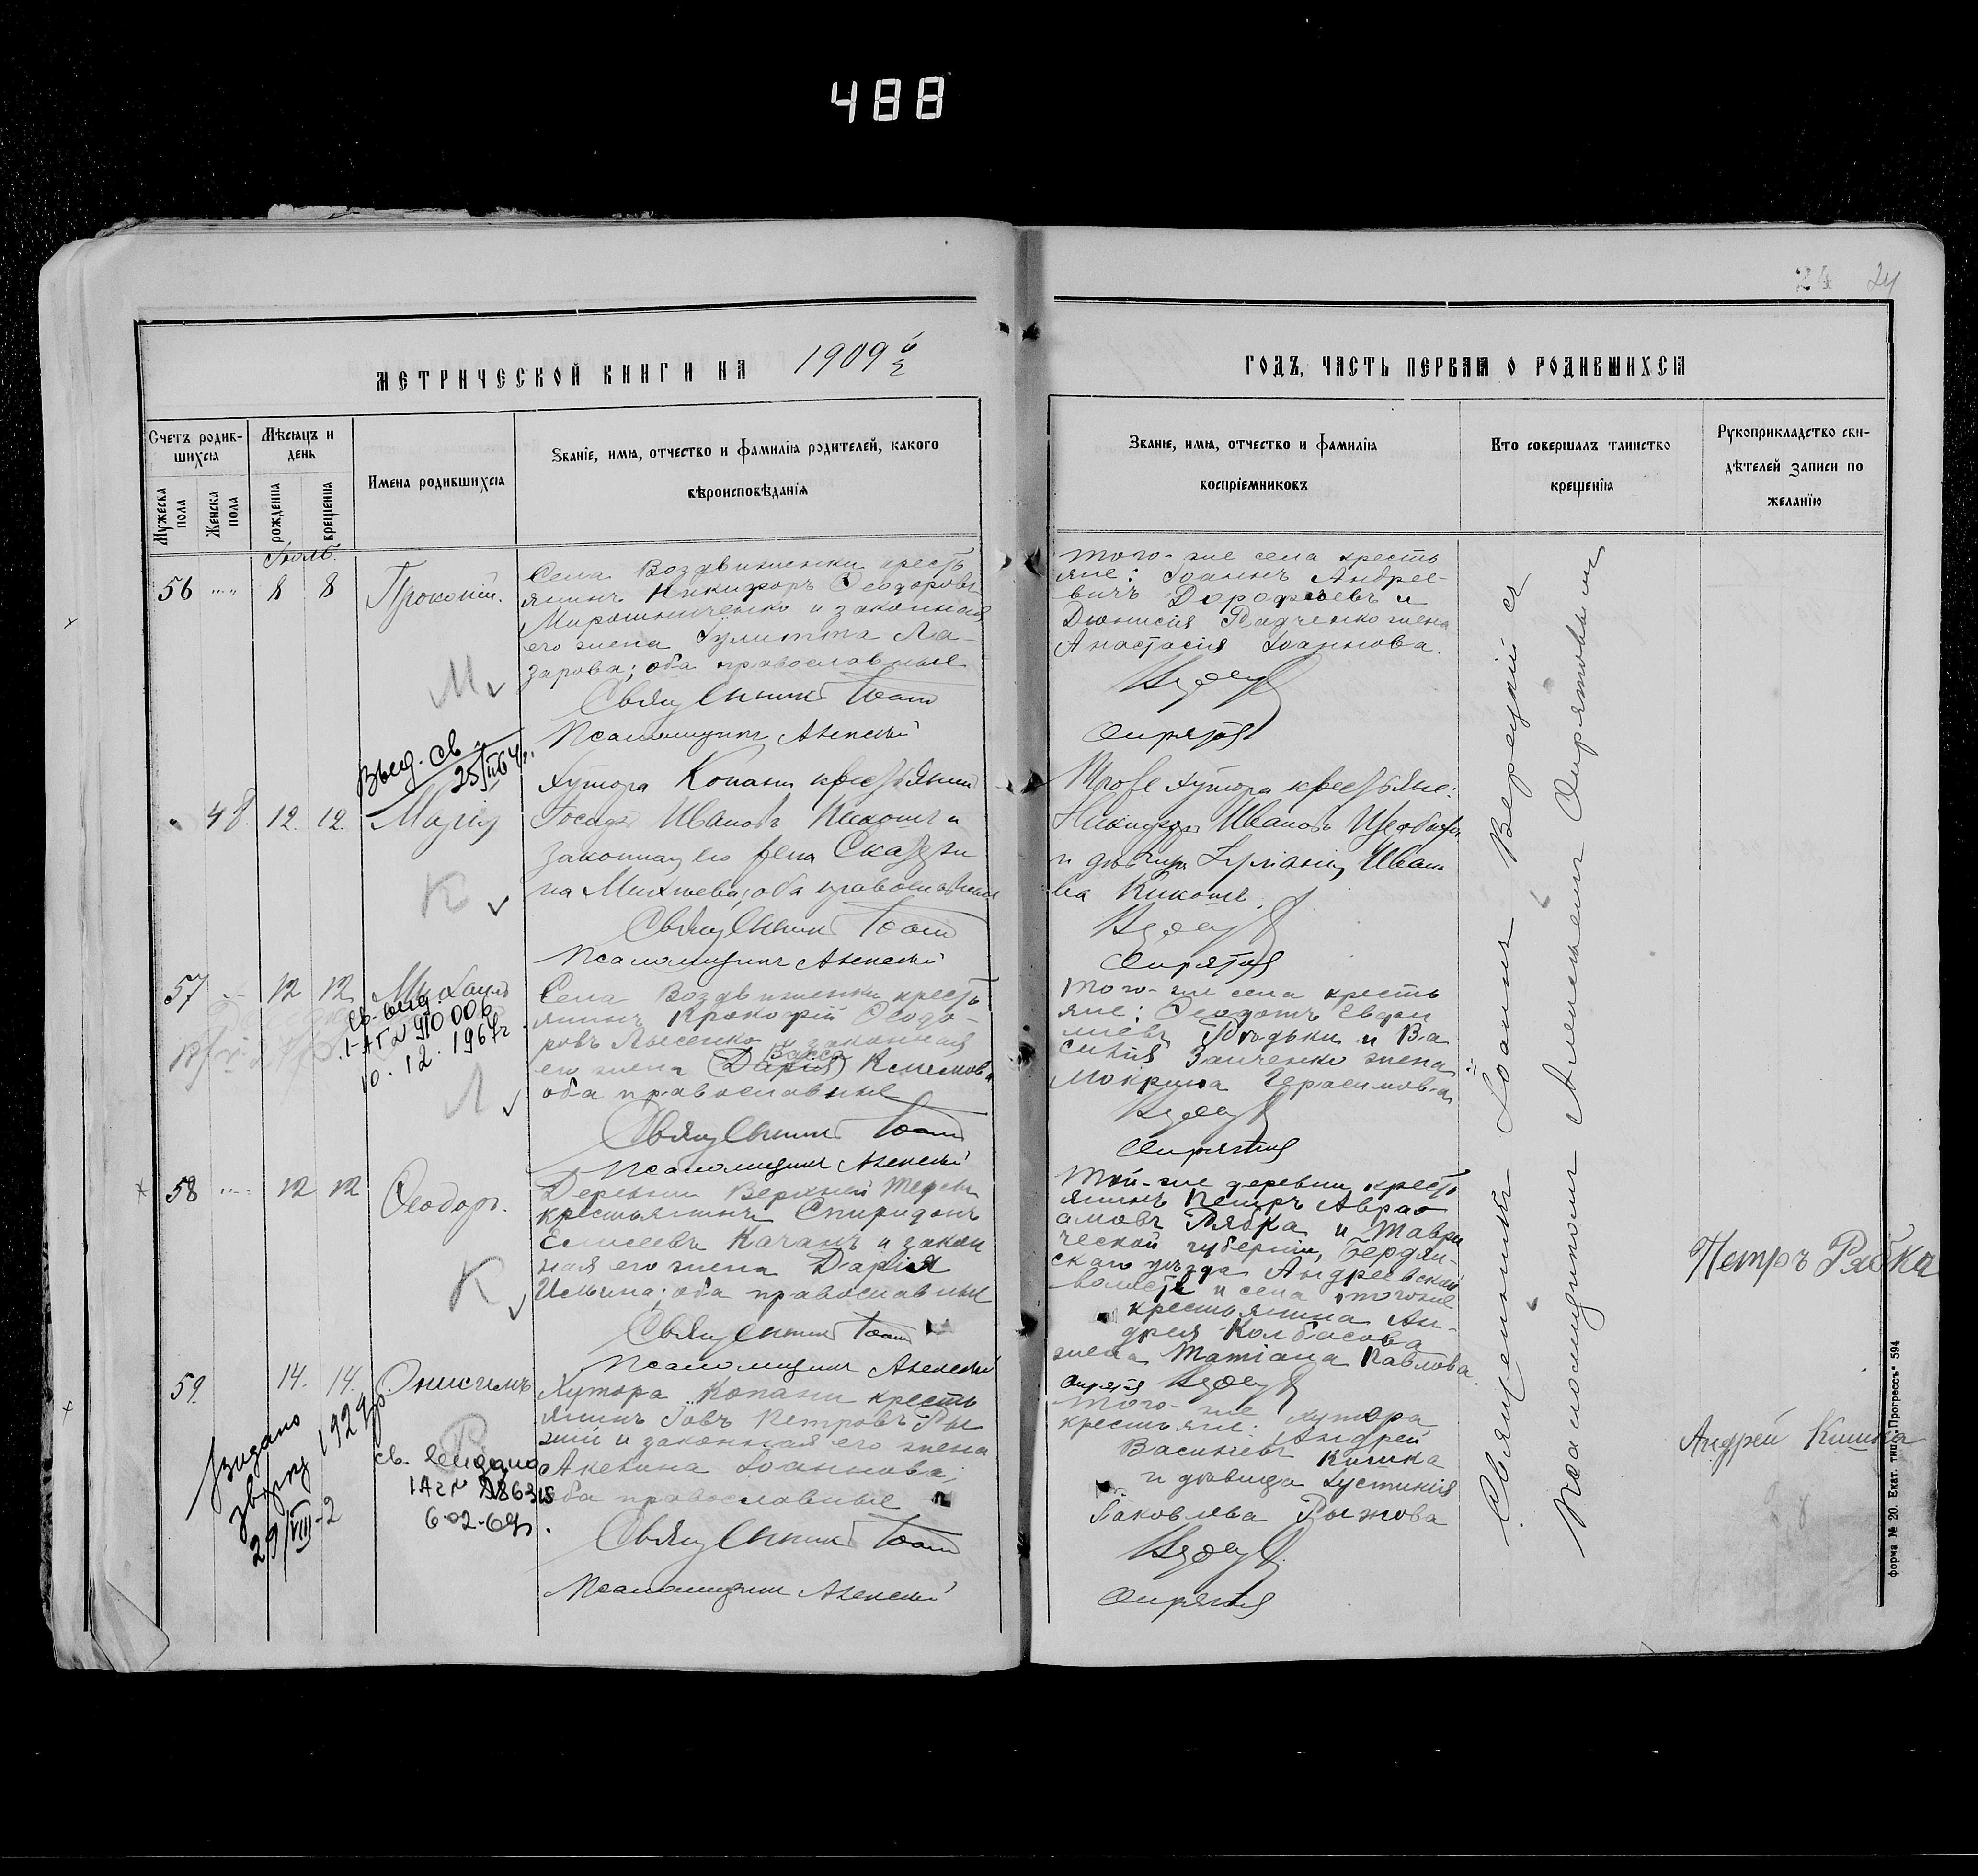 488
24 24
МЕТРИЧЕСКОЙ КНИГИ НА 1909й
ГОДЪ, ЧАСТЬ ПЕРВАЯ О РОДИВШИХСЯ
Счетъ родив-
шихся
Мужеска
пола
Женска
пола
Мѣсяцъ и
день
рожденія
крещенія
Имена родившихся
Званіе, имя, отчество и фамилія родителей, какого
вѣроисповѣданія
Званіе, имя, отчество и фамилія
воспріемниковъ
Кто совершалъ таинство
крещенія
Рукоприкладство сви-
дѣтелей записи по
желанію
Іюль
56 8 8
Прокопій.
Села Воздвиженки кресть
янинъ Никифоръ Ѳеодоровъ
Мирошниченко и законная
его жена Іулитта Ла-
зарова; оба православные
Священникъ Іоаннъ
Псаломщикъ Алексѣй
М
того-же села кресть
яне: Іоаннъ Андрее-
вичъ Дорофѣевъ и
Діонисія Радченко жена
Анастасія Іоаннова.
Опрятовъ
Выд. св.
25/III 64 г.
48. 12. 12. Марія
Хутора Копани крестьянинъ
Иванов и
законная его жена
на оба православные
Священникъ Іоаннъ
Псаломщикъ Алексѣй
К
Того хутора крестьяне:
Никифоръ Ивановъ
и Иван
ва Кикоть.
Опрятовъ
57 12 12 Михаилъ
св. выд.
10.12.1967г
Л
Села Воздвиженки кресть
янинъ Прокофій Ѳеодо-
ровъ Лысенко и законная
Васса
его жена (Дарія) Климова
оба православные
Священникъ Іоаннъ
Псаломщикъ Алексѣй
того-же села кресть
яне: Ѳеодотъ Евфи
міевъ и Ва
силія Заиченко жена
Мокрина Герасимова
Опрятовъ
58 12 12
Ѳеодоръ.
К
Деревни Верхней Терсы
крестьянинъ Спиридонъ
Елисеевъ Качанъ и закон
ная его жена Дарія
Ильина; оба православные
Священникъ Іоаннъ
Псаломщикъ Алексѣй
Той-же деревни кресть
янинъ Петръ Авра
амовъ Рябка и Таври
ческой губерніи, Бердян-
скаго уѣзда Андреевской
волости и села того же
крестьянина Ан-
дрея Колбасова
жена Татіана Павлова.
Опрятовъ
Петръ Рябка
59. 14. 14. Онисимъ
видано
29/VIII-2 1929 р
св. видано
6-02-69г.
Хутора Копани кресть
янинъ Іовъ Петровъ Ры
жій и законная его жена
Акелина Іоаннова,
оба православные
Священникъ Іоаннъ
Псаломщикъ Алексѣй
того-же хутора
крестьяне: Андрей
Васильевъ Кишка
и дѣвица Іустинія
Іаковлева Рыжова
Опрятовъ
Андрей Кишка
Священникъ Іоаннъ
Псаломщикъ Алексѣй Опрятовъ
Форма № 20. Екат. тип. „Прогрессъ" 594